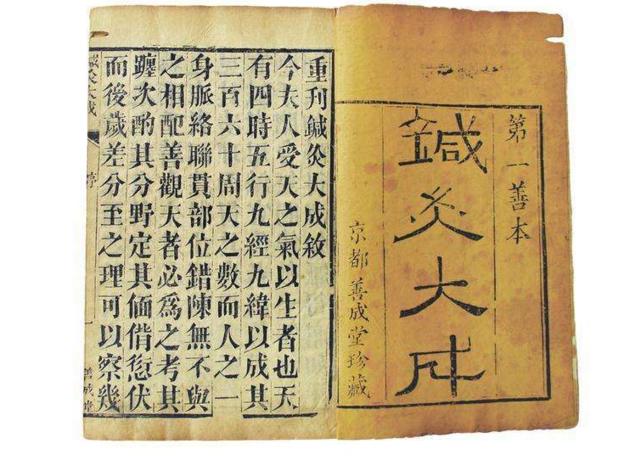 第一善本
鍼灸大成
京都善成堂珍藏
重刊鍼灸大成敘
今夫人受天之氣以生者也天
有四時五行九經九緯以成其
三百六十周天之數而人之一
身脈絡聯貫部位錯陳無不與
之相配善觀天者必為之考其
躔次酌其分野定其
而後歲差分至之理可以察幾
鍼灸大成
序
善成堂